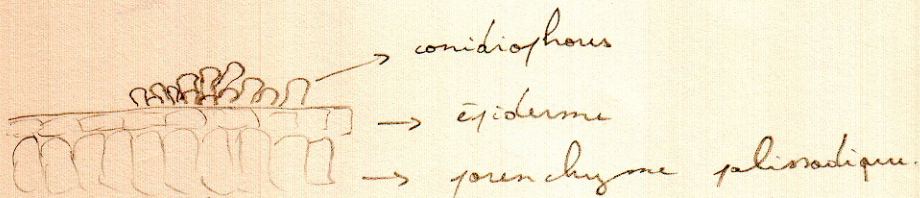 conidiophores
épiderme
parenchyme palissadique.